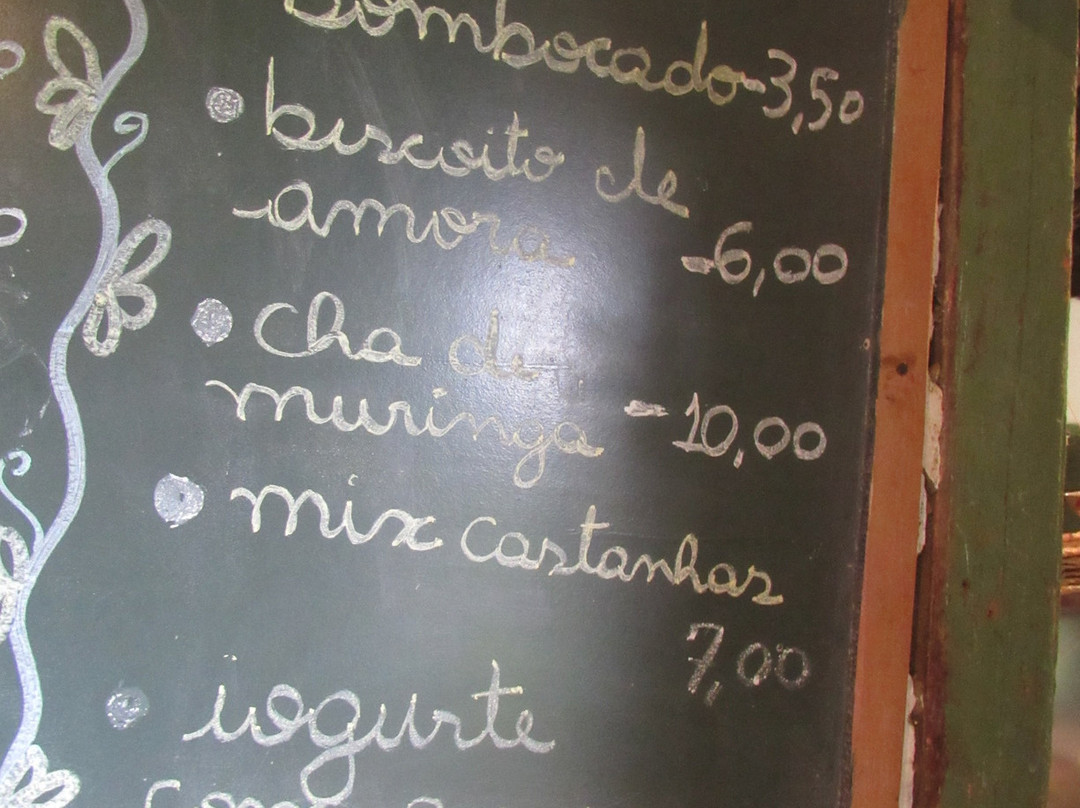 bombocado-3,50
biscoito de
amora -6,00
cha de
muringa - 10,00
mix castanhas
7,00
iogurte